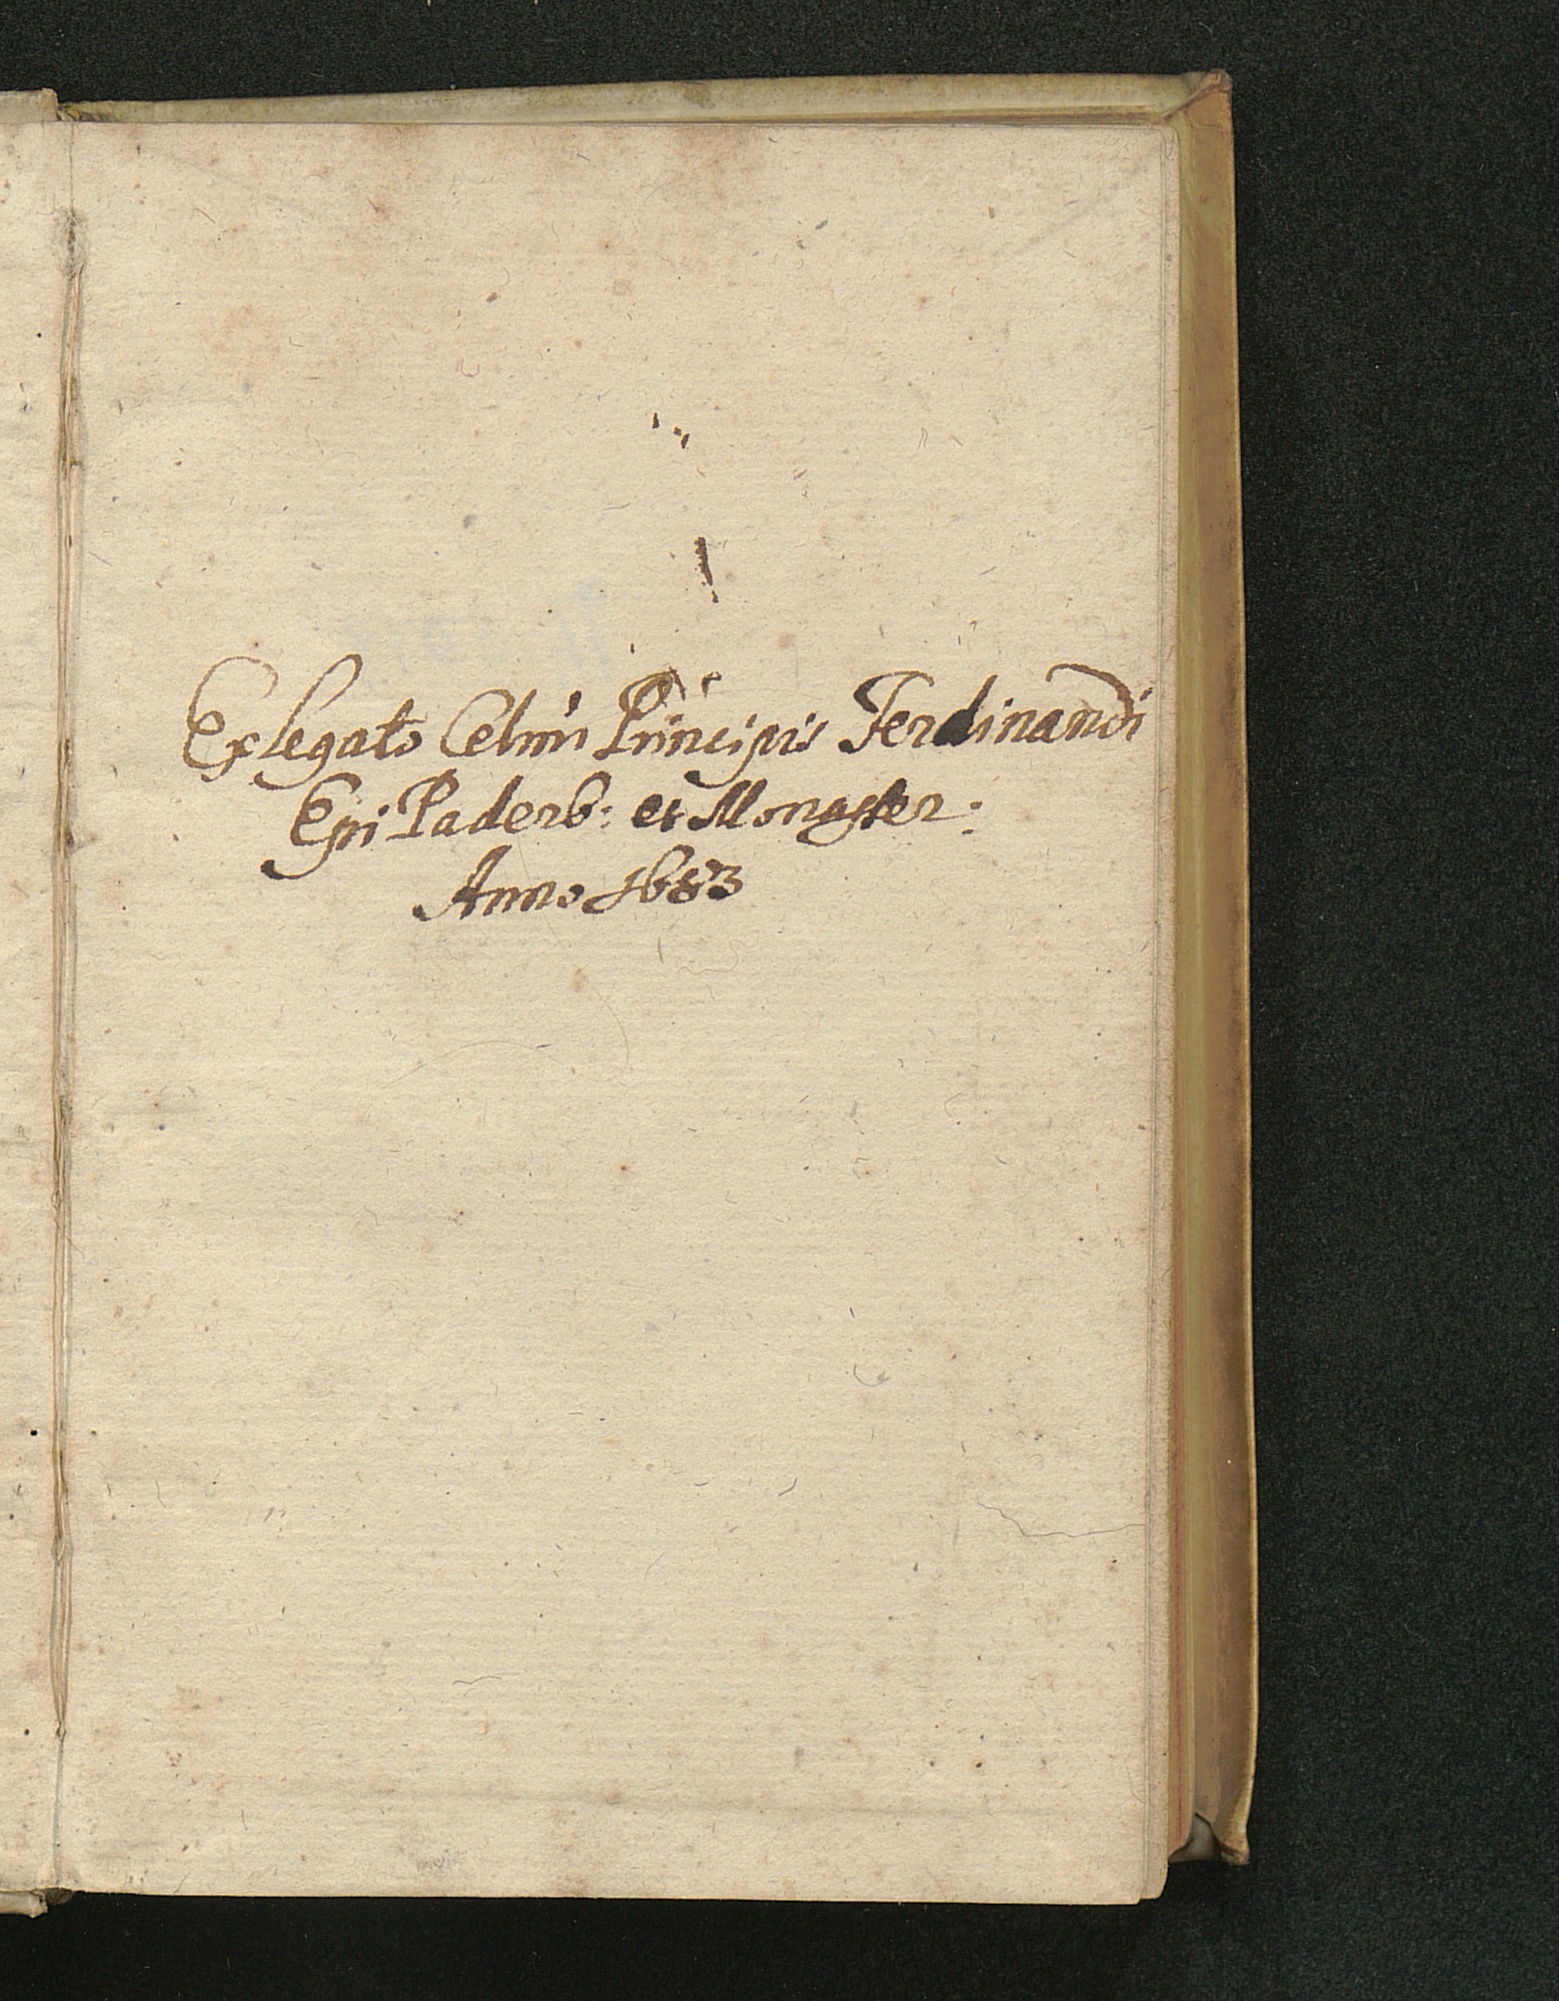 Ex legato Celmi Principis Ferdinandi
Epi Paderb: et Monaster:
Anno 1683